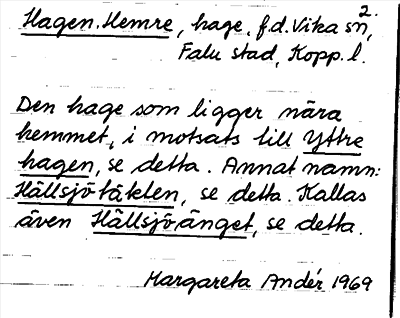 2.
Hagen. Hemre, hage, f.d. Vika sn,
Falu stad, Kopp. l.
Den hage som ligger nära
hemmet, i motsats till Yttre
hagen, se detta. Annat namn:
Hällsjötäkten, se detta. Kallas
även Hällsjöänget, se detta.
Margareta Andér 1969